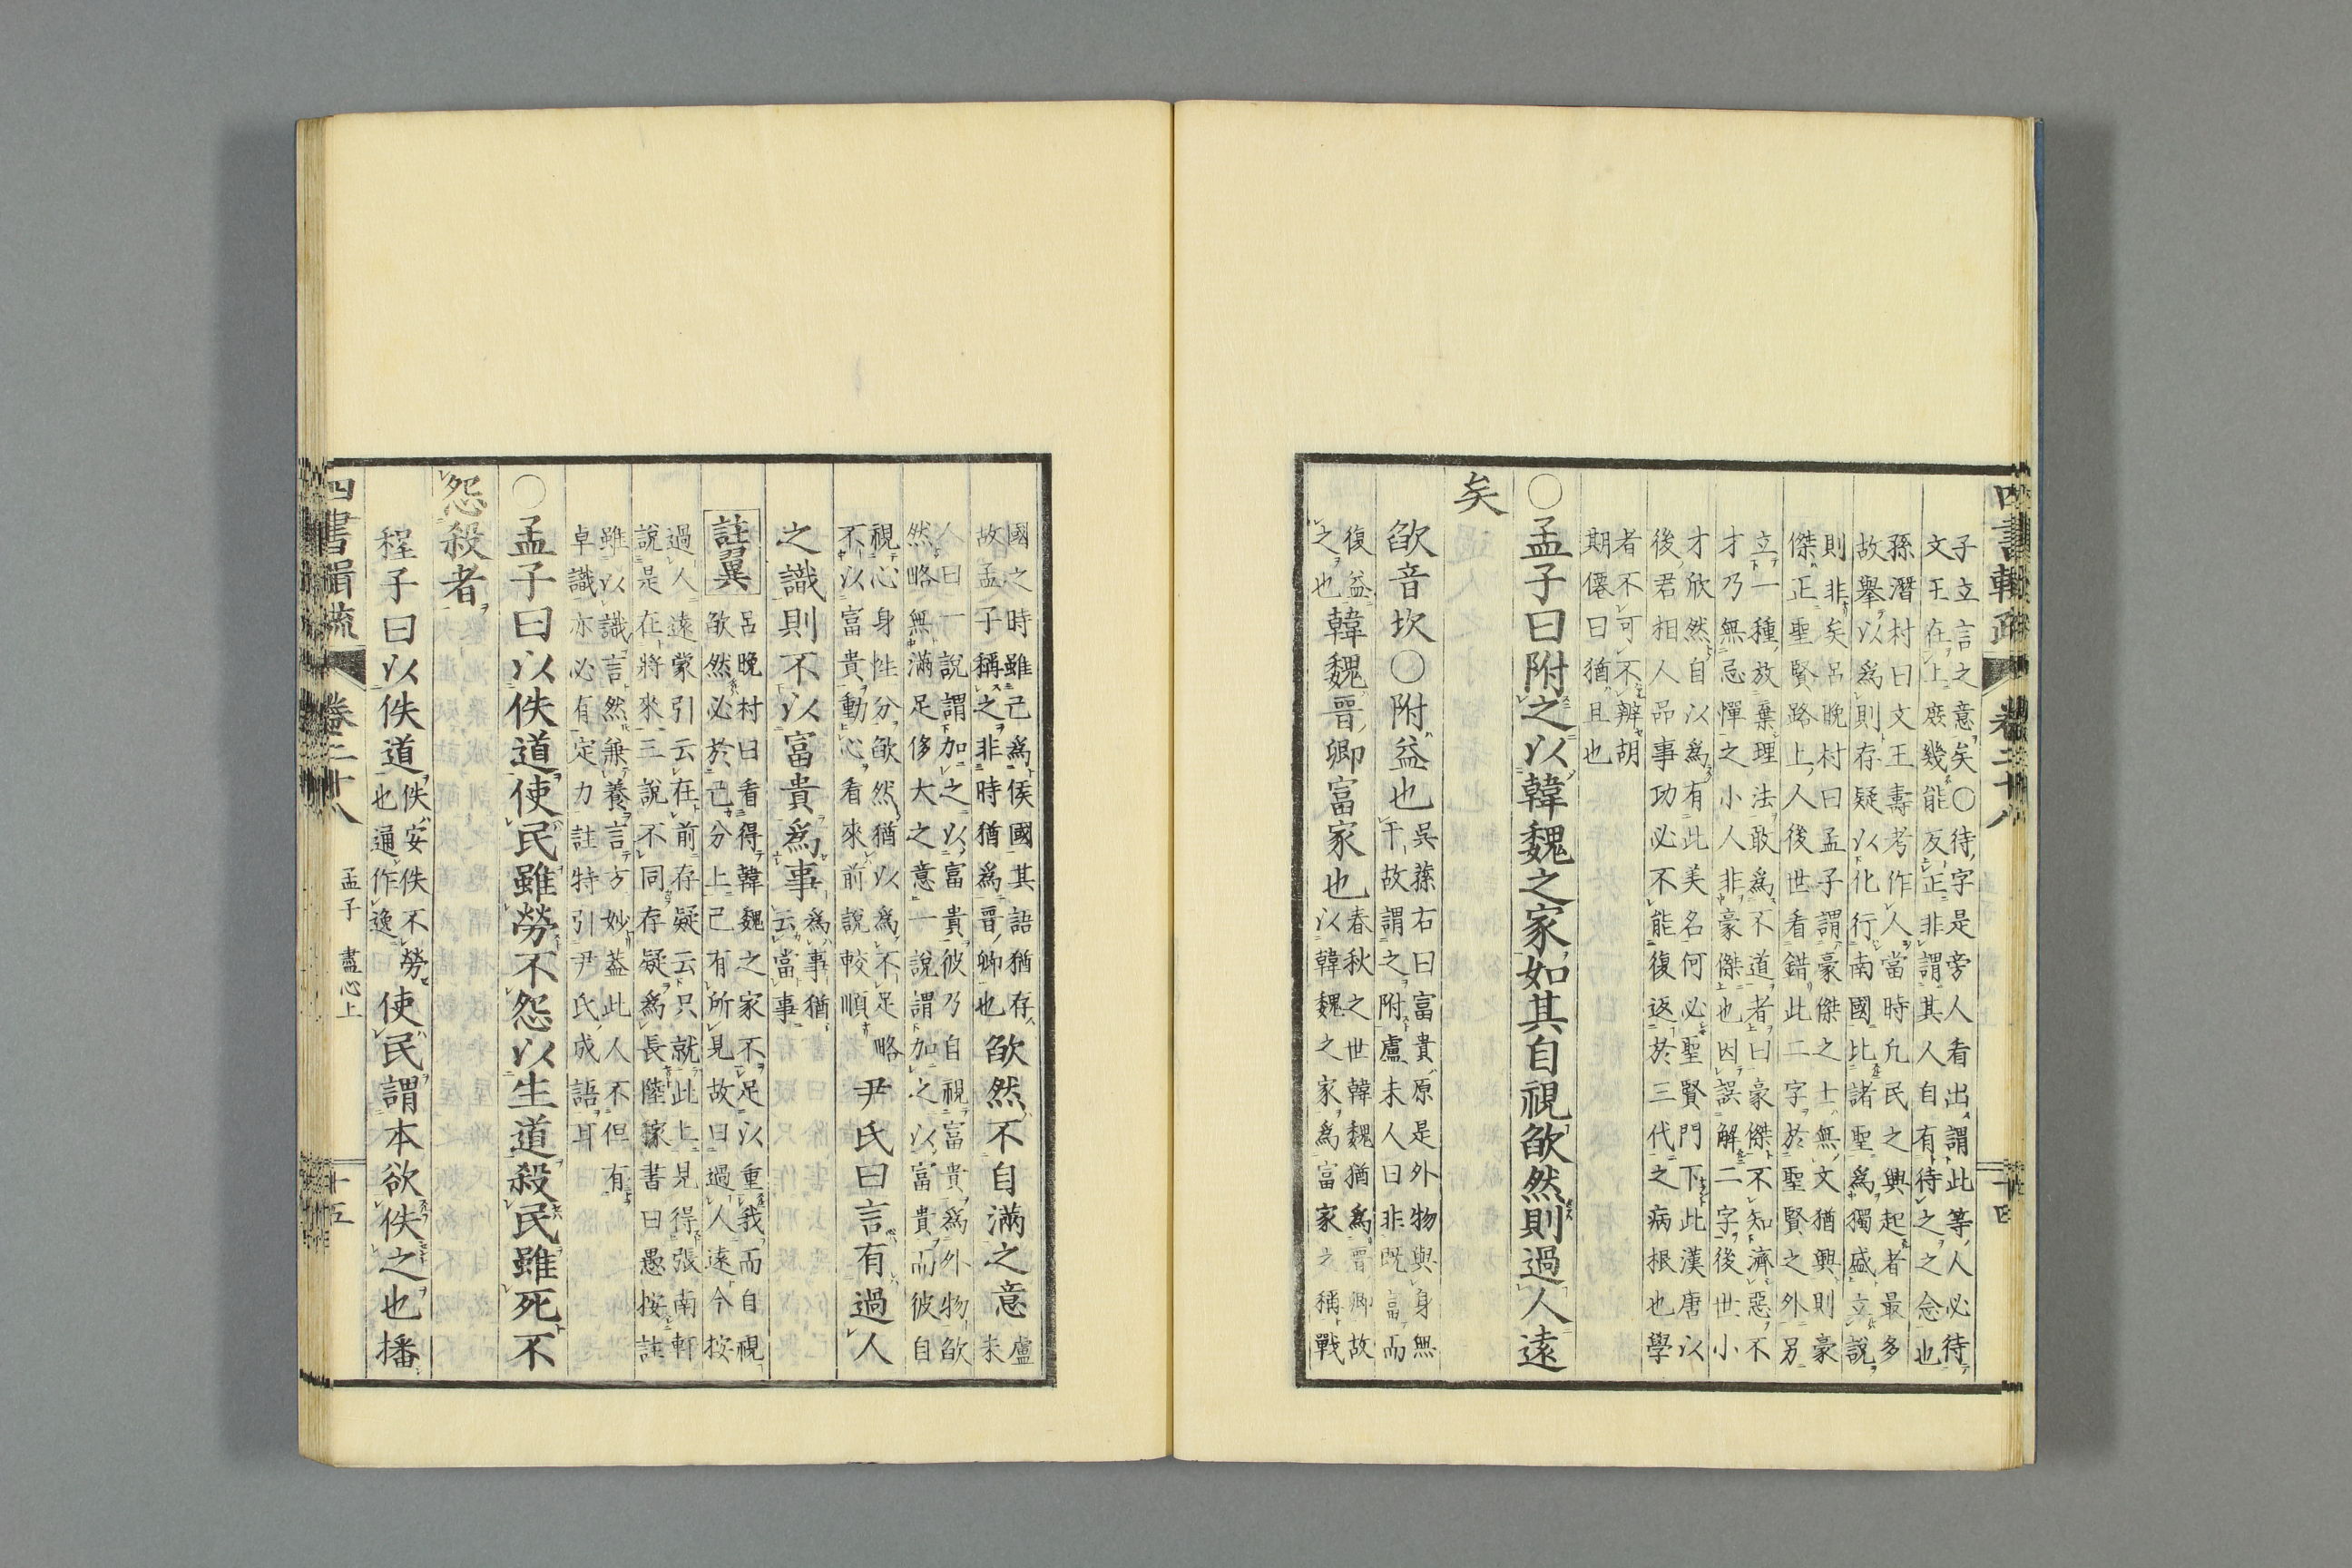 四書輯疏 卷二十八 二十四
子立言之意矣○待字是旁人看出謂此等人必待
文王在上庶幾能反正非謂其人自有待之之念也
孫潛村曰文王壽考作人當時凡民之興起者最多
故舉以爲則存疑以化行南國比諸聖爲獨盛立說
則非矣呂晩村曰孟子謂豪傑之士無文猶興則豪
傑正聖賢路上人後世看錯此二字於聖賢之外另
立一種放棄理法敢爲不道者曰豪傑不知濟惡不
才乃無忌憚之小人非豪傑也因誤解二字後世小
才欣然自以爲有此美名何必聖賢門下此漢唐以
後君相人品事功必不能復返於三代之病根也學
者不可不辨胡
期僊曰猶且也
○孟子曰附之以韓魏之家如其自視欿然則過人遠
矣
欿音坎○附益也吳蓀右曰富貴原是外物與身無
干故謂之附盧未人曰非既富而
復益韓魏晉卿富家也春秋之世韓魏猶爲晉卿故
之也以韓魏之家爲富家之稱戰
國之時雖已爲侯國其語猶存
故孟子稱之非時猶爲晉卿也欿然不自滿之意盧未
人曰一說謂加之以富貴彼乃自視富貴爲外物欿
然略無滿足侈大之意一說謂加之以富貴而彼自
視心身性分欿然猶以爲不足略
不以富貴動心看來前說較順尹氏曰言有過人
之識則不以富貴爲事爲事猶
云當事
註翼呂晩村曰看得韓魏之家不足以重我而自視
欿然必於己分上已有所見故曰過人遠今按
過人遠蒙引云在前存疑云只就此上見得張南軒
說是在將來三說不同存疑爲長陸稼書曰愚按註
雖以識言然兼養言方妙蓋此人不但有
卓識亦必有定力註特引尹氏成語耳
○孟子曰以佚道使民雖勞不怨以生道殺民雖死不
怨殺者
程子曰以佚道佚安佚不勞
也通作逸使民謂本欲佚之也播
四書輯疏 卷二十八 孟子 盡心上 二十五